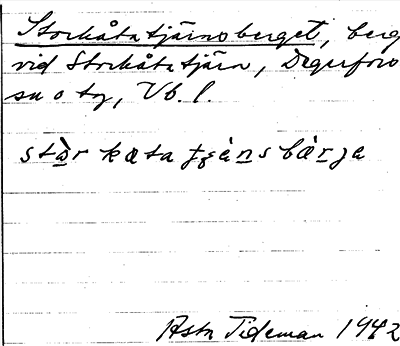 Storkåtatjärnsberget, berg
vid Storkåtatjärn, Degerfors
sn o tg, Vb. l.
stὰr kata ʈʂὰṇs bὰrja
Asta Tideman 1942